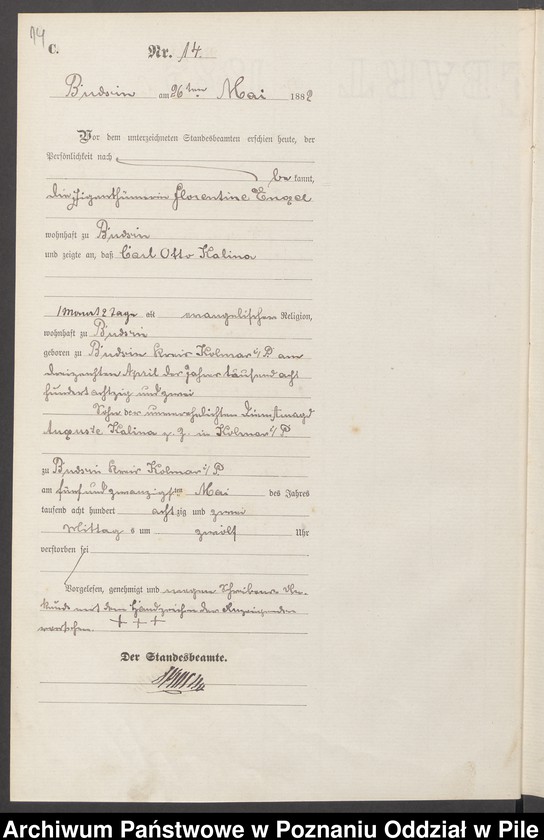 14
C.
Nr. 14.
Budsin am 26ten Mai 1882
Vor dem unterzeichneten Standesbeamten erschien heute, der
Persönlichkeit nach
be kannt,
die Eigenthümerin Florentine Engel
wohnhaft zu Budsin
und zeigte an, daß Carl Otto Kalina
1 Monat 12 Tage alt evangelischer Religion,
wohnhaft zu Budsin
geboren zu Budsin Kreis Kolmar i/P am
dreizehnten April des Jahres tausend acht
hundert achtzig und zwei
Sohn der unverehelichten Dienstmagd
Auguste Kalina z. Z. in Kolmar i/P
zu Budsin Kreis Kolmar i/P
am fünf und zwanzigsten Mai des Jahres
tausend acht hundert achtzig und zwei
Mittag s um zwölf Uhr
verstorben sei
Vorgelesen, genehmigt und wegen Schreibens Un-
kunde mit dem Handzeichen der Anzeigenden
versehen. + + +
Der Standesbeamte.
Archiwum Państwowe w Poznaniu Oddział w Pile